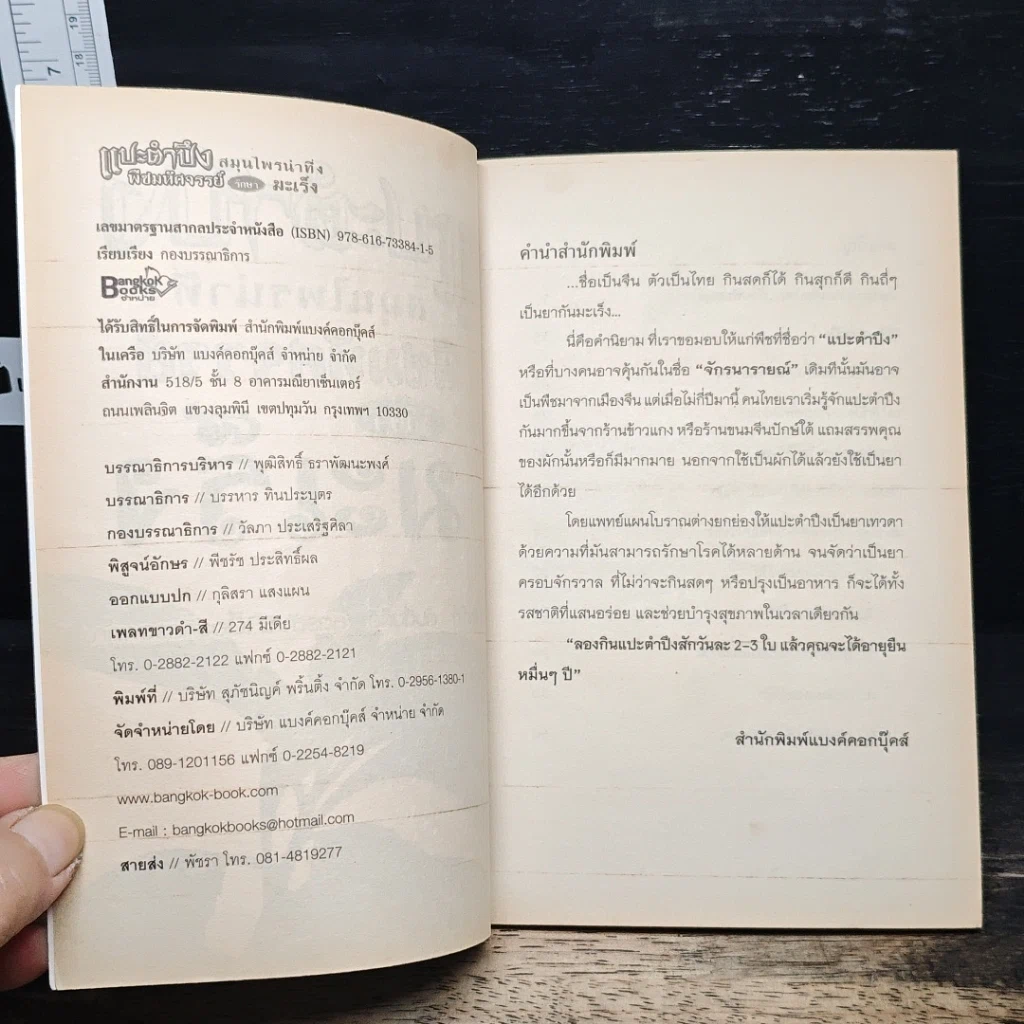 แปะตำปึง สมุนไพรน่าทึ่ง
พืชมหัศจรรย์ รักษา มะเร็ง
เลขมาตรฐานสากลประจำหนังสือ (ISBN) 978-616-73384-1-5
เรียบเรียง กองบรรณาธิการ
Bangkok
Books
จำหน่าย
ได้รับสิทธิ์ในการจัดพิมพ์ สำนักพิมพ์แบงค์คอกบุ๊คส์
ในเครือ บริษัท แบงค์คอกบุ๊คส์ จำหน่าย จำกัด
สำนักงาน 518/5 ชั้น 8 อาคารมณียาเซ็นเตอร์
ถนนเพลินจิต แขวงลุมพินี เขตปทุมวัน กรุงเทพฯ 10330
บรรณาธิการบริหาร // พุฒิสิทธิ์ ธราพัฒนะพงศ์
บรรณาธิการ // บรรหาร ทินประบุตร
กองบรรณาธิการ // วัลภา ประเสริฐศิลา
พิสูจน์อักษร // พีชรัช ประสิทธิ์ผล
ออกแบบปก // กุลิสรา แสงแผน
เพลทขาวดำ-สี // 274 มีเดีย
โทร. 0-2882-2122 แฟกซ์ 0-2882-2121
พิมพ์ที่ // บริษัท สุภัชนิญค์ พริ้นติ้ง จำกัด โทร. 0-2956-1380-1
จัดจำหน่ายโดย // บริษัท แบงค์คอกบุ๊คส์ จำหน่าย จำกัด
โทร. 089-1201156 แฟกซ์ 0-2254-8219
www.bangkok-book.com
E-mail : bangkokbooks@hotmail.com
สายส่ง // พัชรา โทร. 081-4819277
คำนำสำนักพิมพ์
...ชื่อเป็นจีน ตัวเป็นไทย กินสดก็ได้ กินสุกก็ดี กินถี่ๆ
เป็นยากันมะเร็ง...
นี่คือคำนิยาม ที่เราขอมอบให้แก่พืชที่ชื่อว่า “แปะตำปึง”
หรือที่บางคนอาจคุ้นกันในชื่อ “จักรนารายณ์” เดิมทีนั้นมันอาจ
เป็นพืชมาจากเมืองจีน แต่เมื่อไม่กี่ปีมานี้ คนไทยเราเริ่มรู้จักแปะตำปึง
กันมากขึ้นจากร้านข้าวแกง หรือร้านขนมจีนปักษ์ใต้ แถมสรรพคุณ
ของผักนั้นหรือก็มีมากมาย นอกจากใช้เป็นผักได้แล้วยังใช้เป็นยา
ได้อีกด้วย
โดยแพทย์แผนโบราณต่างยกย่องให้แปะตำปึงเป็นยาเทวดา
ด้วยความที่มันสามารถรักษาโรคได้หลายด้าน จนจัดว่าเป็นยา
ครอบจักรวาล ที่ไม่ว่าจะกินสดๆ หรือปรุงเป็นอาหาร ก็จะได้ทั้ง
รสชาติที่แสนอร่อย และช่วยบำรุงสุขภาพในเวลาเดียวกัน
“ลองกินแปะตำปึงสักวันละ 2-3 ใบ แล้วคุณจะได้อายุยืน
หมื่นๆ ปี”
สำนักพิมพ์แบงค์คอกบุ๊คส์
7
19
18